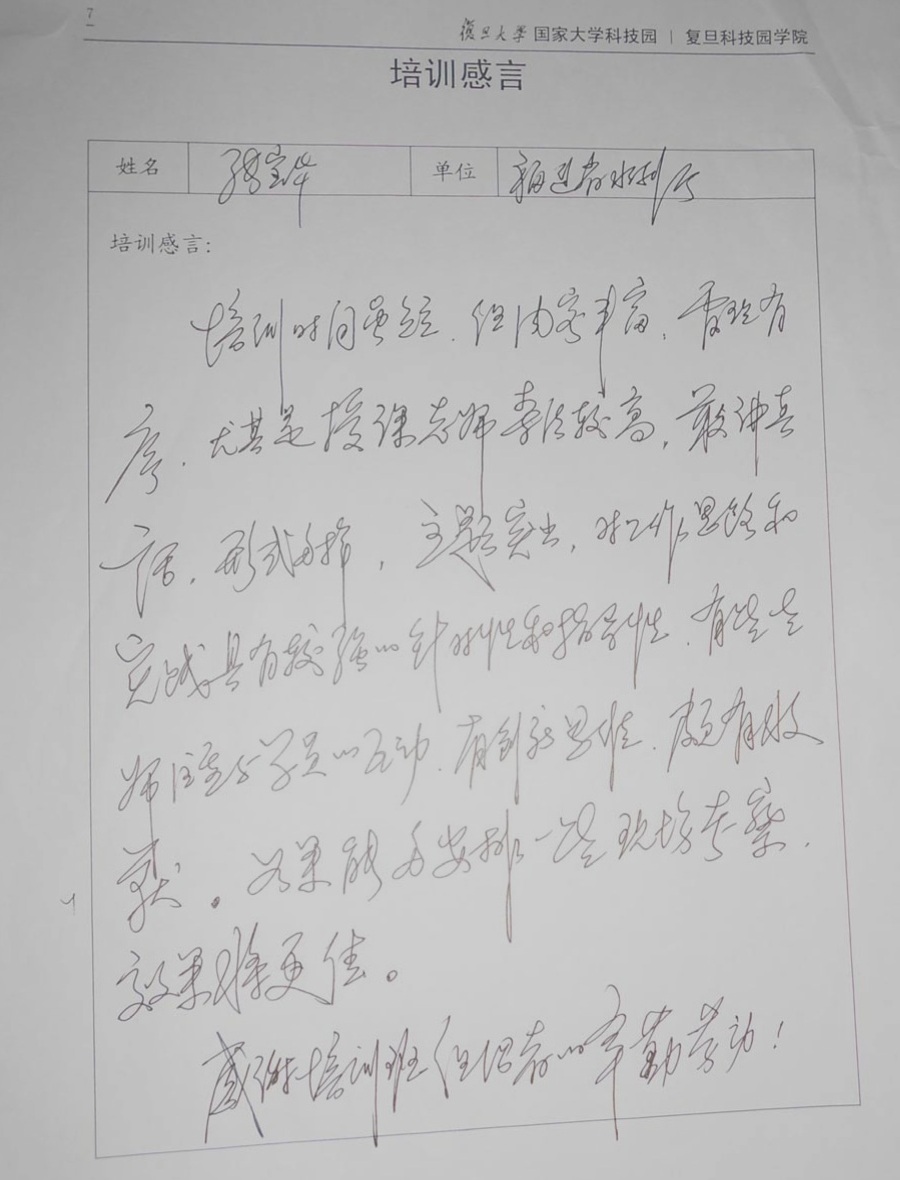 7
复旦大学 国家大学科技园 | 复旦科技园学院
培训感言
姓名 单位 福建省水利厅
培训感言:
培训时间虽短,但内容丰富,管理有
序,尤其是授课老师素质较高,敢讲真
话,形式多样,主题突出,对工作思路和
完成具有较强的针对性和指导性,有些老
师注意与学员的互动,有创新思维,颇有收
获。如果能多安排一些现场考察,
效果将更佳。
感谢培训班组织者的辛勤劳动!